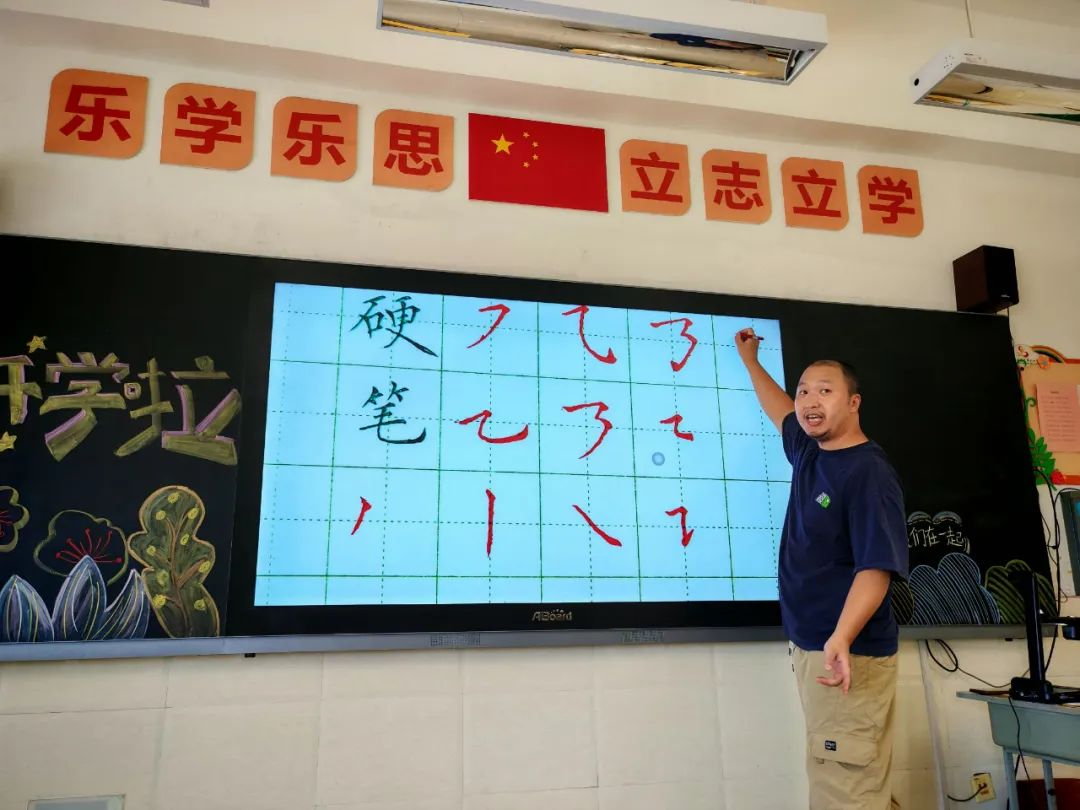 乐学乐思 立志立学
开学啦
硬
笔
AIBoard
我们在一起